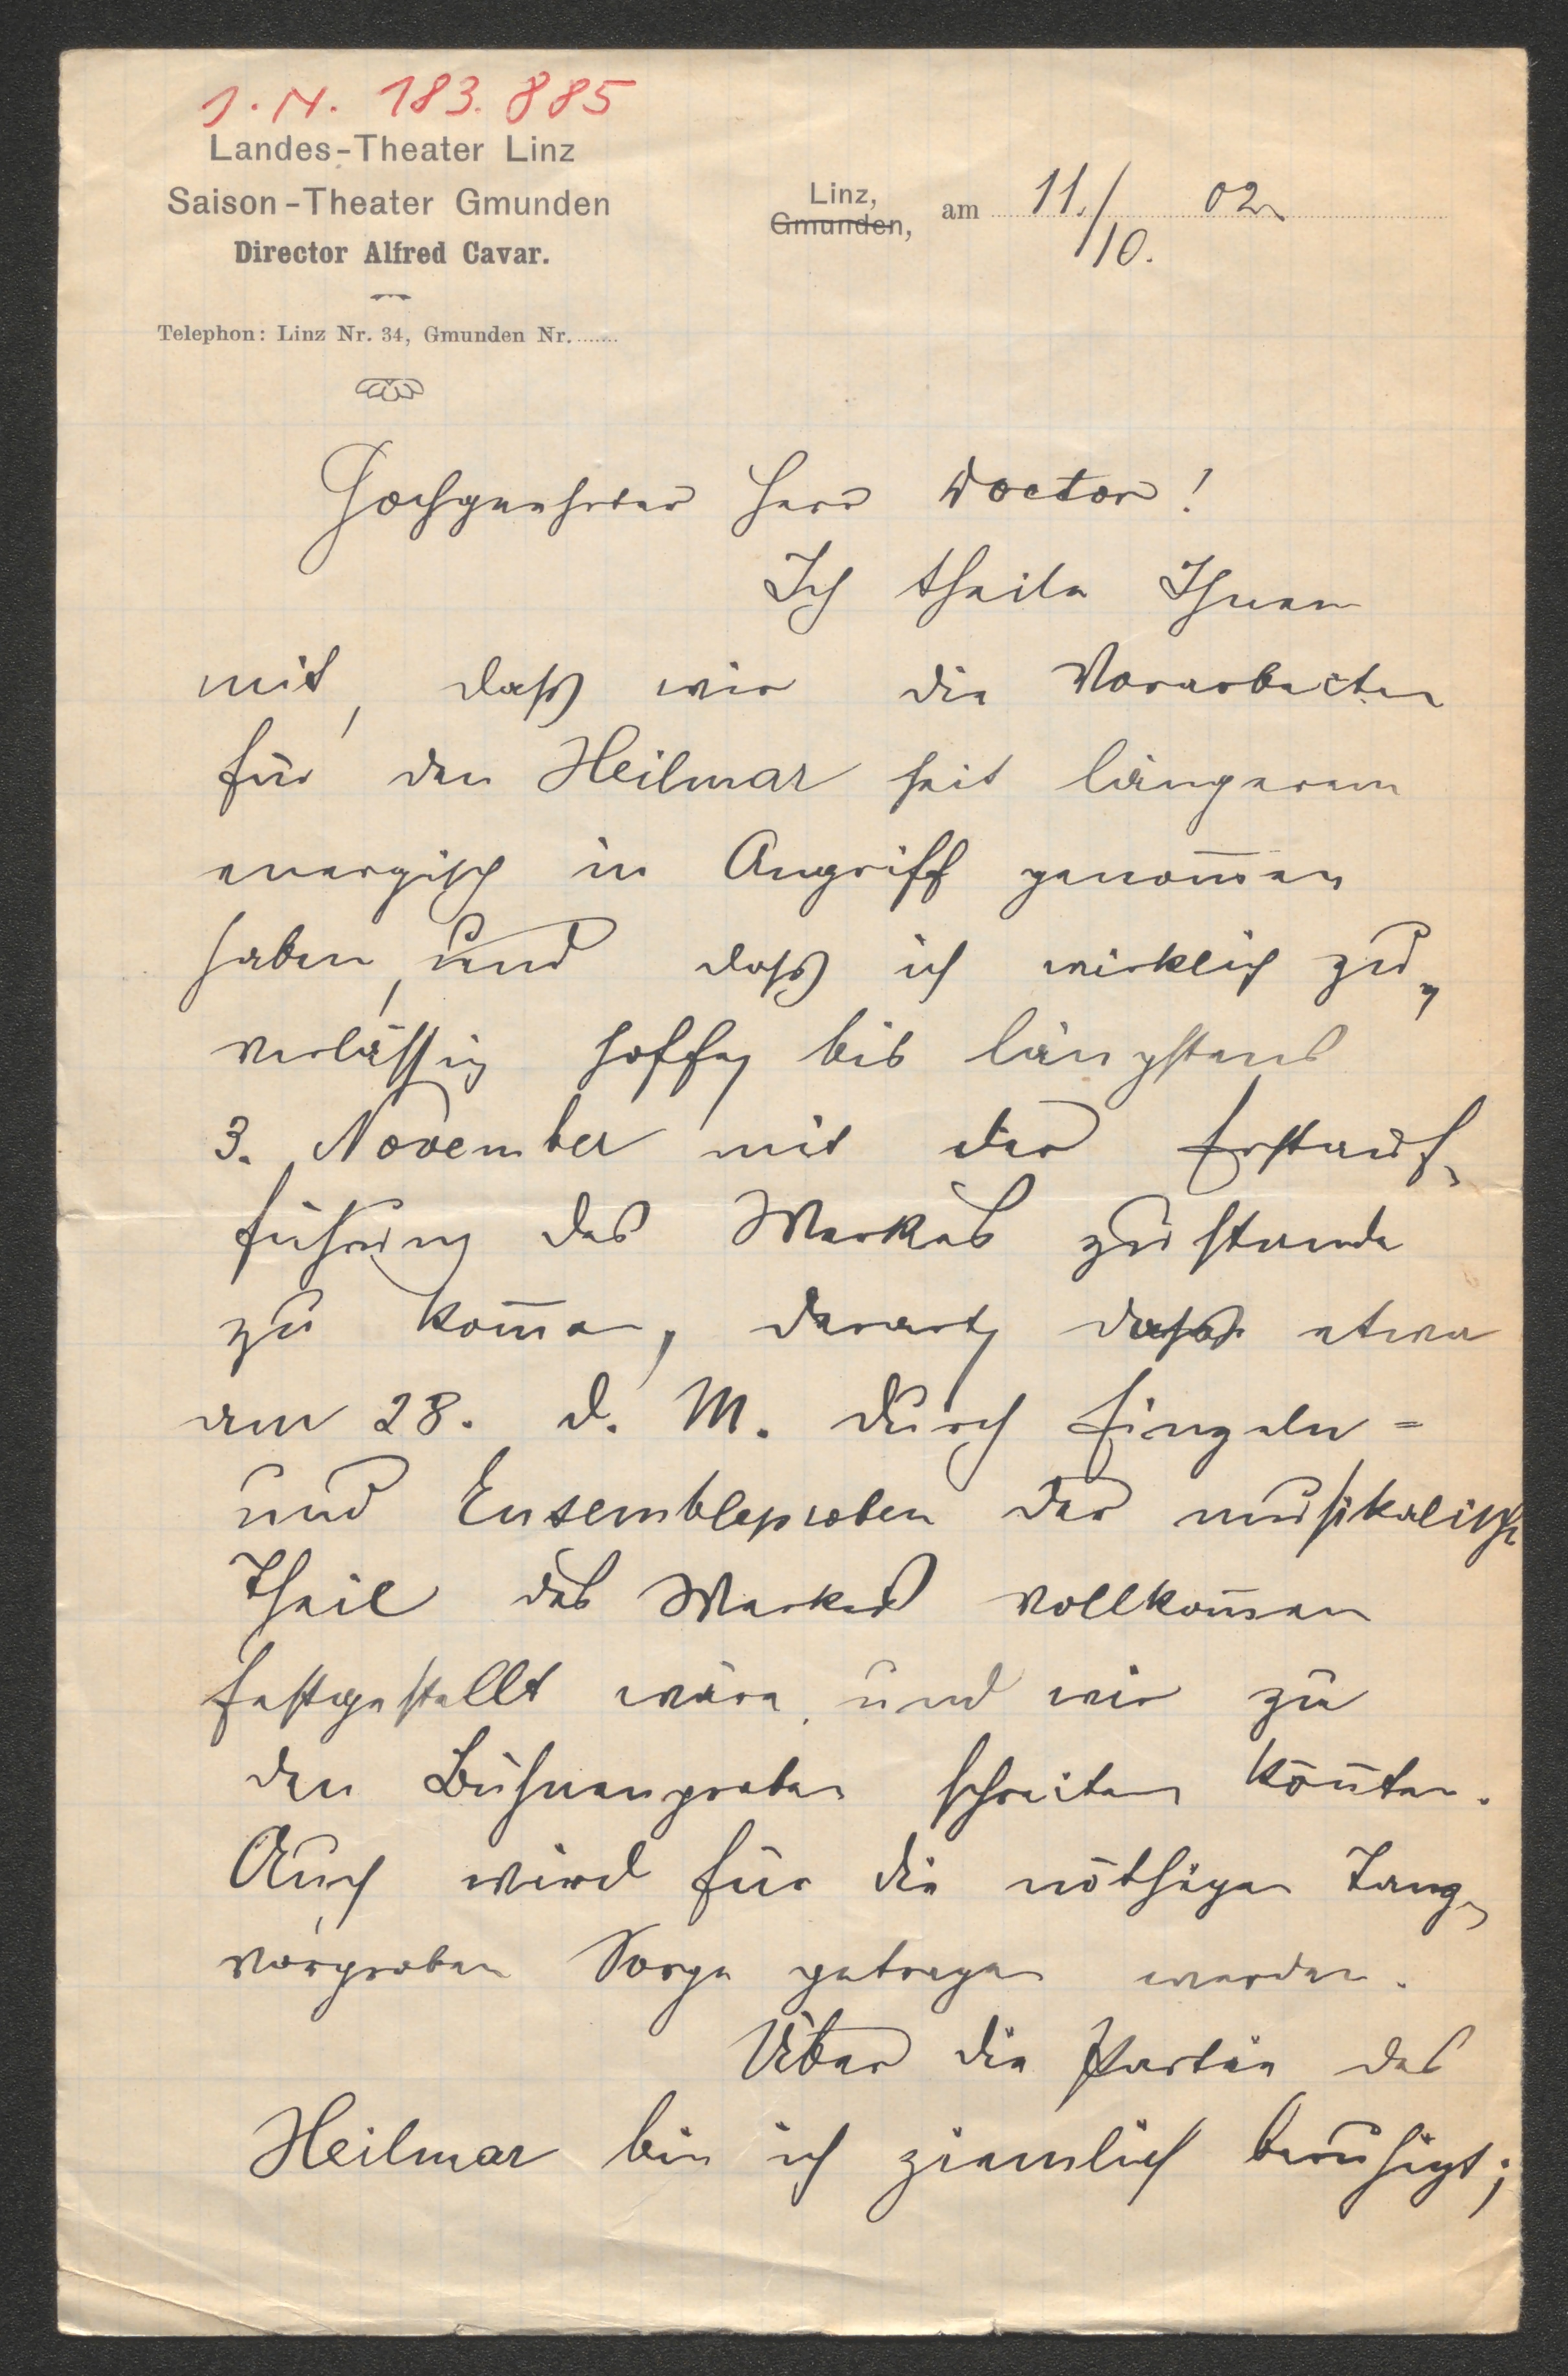 J. N. 183.885
Landes-Theater Linz
Saison-Theater Gmunden
Director Alfred Cavar.
Telephon: Linz Nr. 34, Gmunden Nr. ........
Linz,
Gmunden, am 11./10. 02
Hochgeehrter Herr Doctor!
Ich theile Ihnen
mit, daß wir die Vorarbeiten
für den Heilmar seit längerem
energisch in Angriff genom̄en
haben, und daß ich wirklich zu„
verlässig hoffe, bis längstens
3. November mit der Erstauf„
führung des Werkes zustande
zu kom̄en, derart, daß etwa
am 28. d. M. durch Einzeln=
und Ensembleproben der musikalische
Theil des Werkes vollkom̄en
festgestellt wäre, und wir zu
den Bühnenproben schreiten kön̄ten.
Auch wird für die nöthigen Tanz„
vorproben Sorge getragen werden.
Über die Partie des
Heilmar bin ich ziemlich beruhigt;